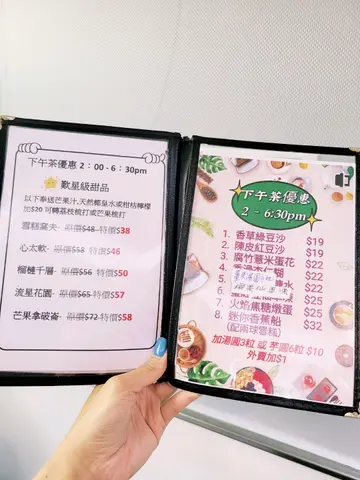 下午茶優惠 2:00-6:30pm
歎星級甜品
以下奉送芒果汁,天然椰皇水或柑桔檸檬
加$20 可轉荔枝梳打或芒果梳打
雪糕窩夫- 原價$48- 特價$38
心太軟- 原價$58- 特價$46
榴槤千層- 原價$56 特價$50
流星花園- 原價$65 特價$57
芒果拿破崙- 原價$72 特價$58
下午茶優惠
2 - 6:30pm
1. 香草綠豆沙 $19
2. 陳皮紅豆沙 $19
3. 腐竹薏米蛋花 $22
4. $22
5. $22
6. $25
7. 火焰焦糖燉蛋 $25
8. 迷你香蕉船 $32
(配兩球雪糕)
加湯圓3粒 或 芋圓6粒 $10
外賣加$1